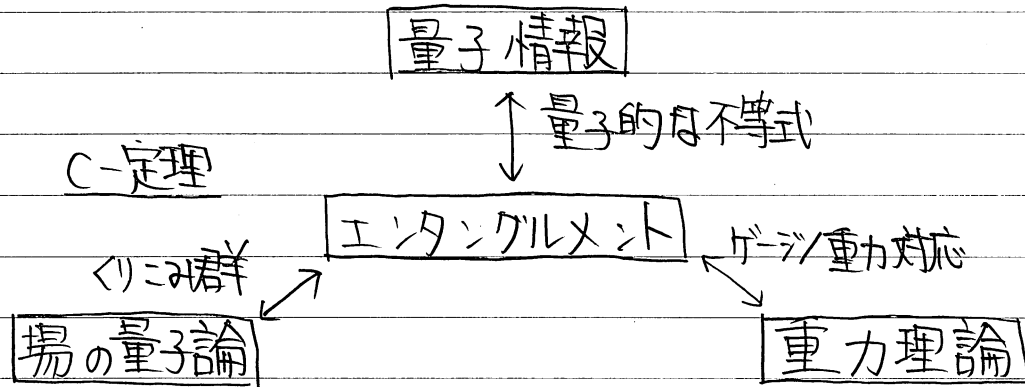 量子情報
量子的な不等式
C-定理
エンタングルメント
ゲージ/重力対応
くりこみ群
場の量子論
重力理論